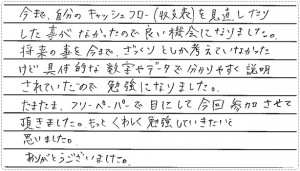 今まで、自分のキャッシュフロー(収支表)を見直したり
した事がなかったので良い機会になりました。
将来の事を今まで、ざっくりとしか考えていなかった
けど具体的な数字やデータで分かりやすく説明
されていたので勉強になりました。
たまたま、フリーペーパーで目にして今回参加させて
頂きました。もっとくわしく勉強していきたいと
思いました。
ありがとうございました。